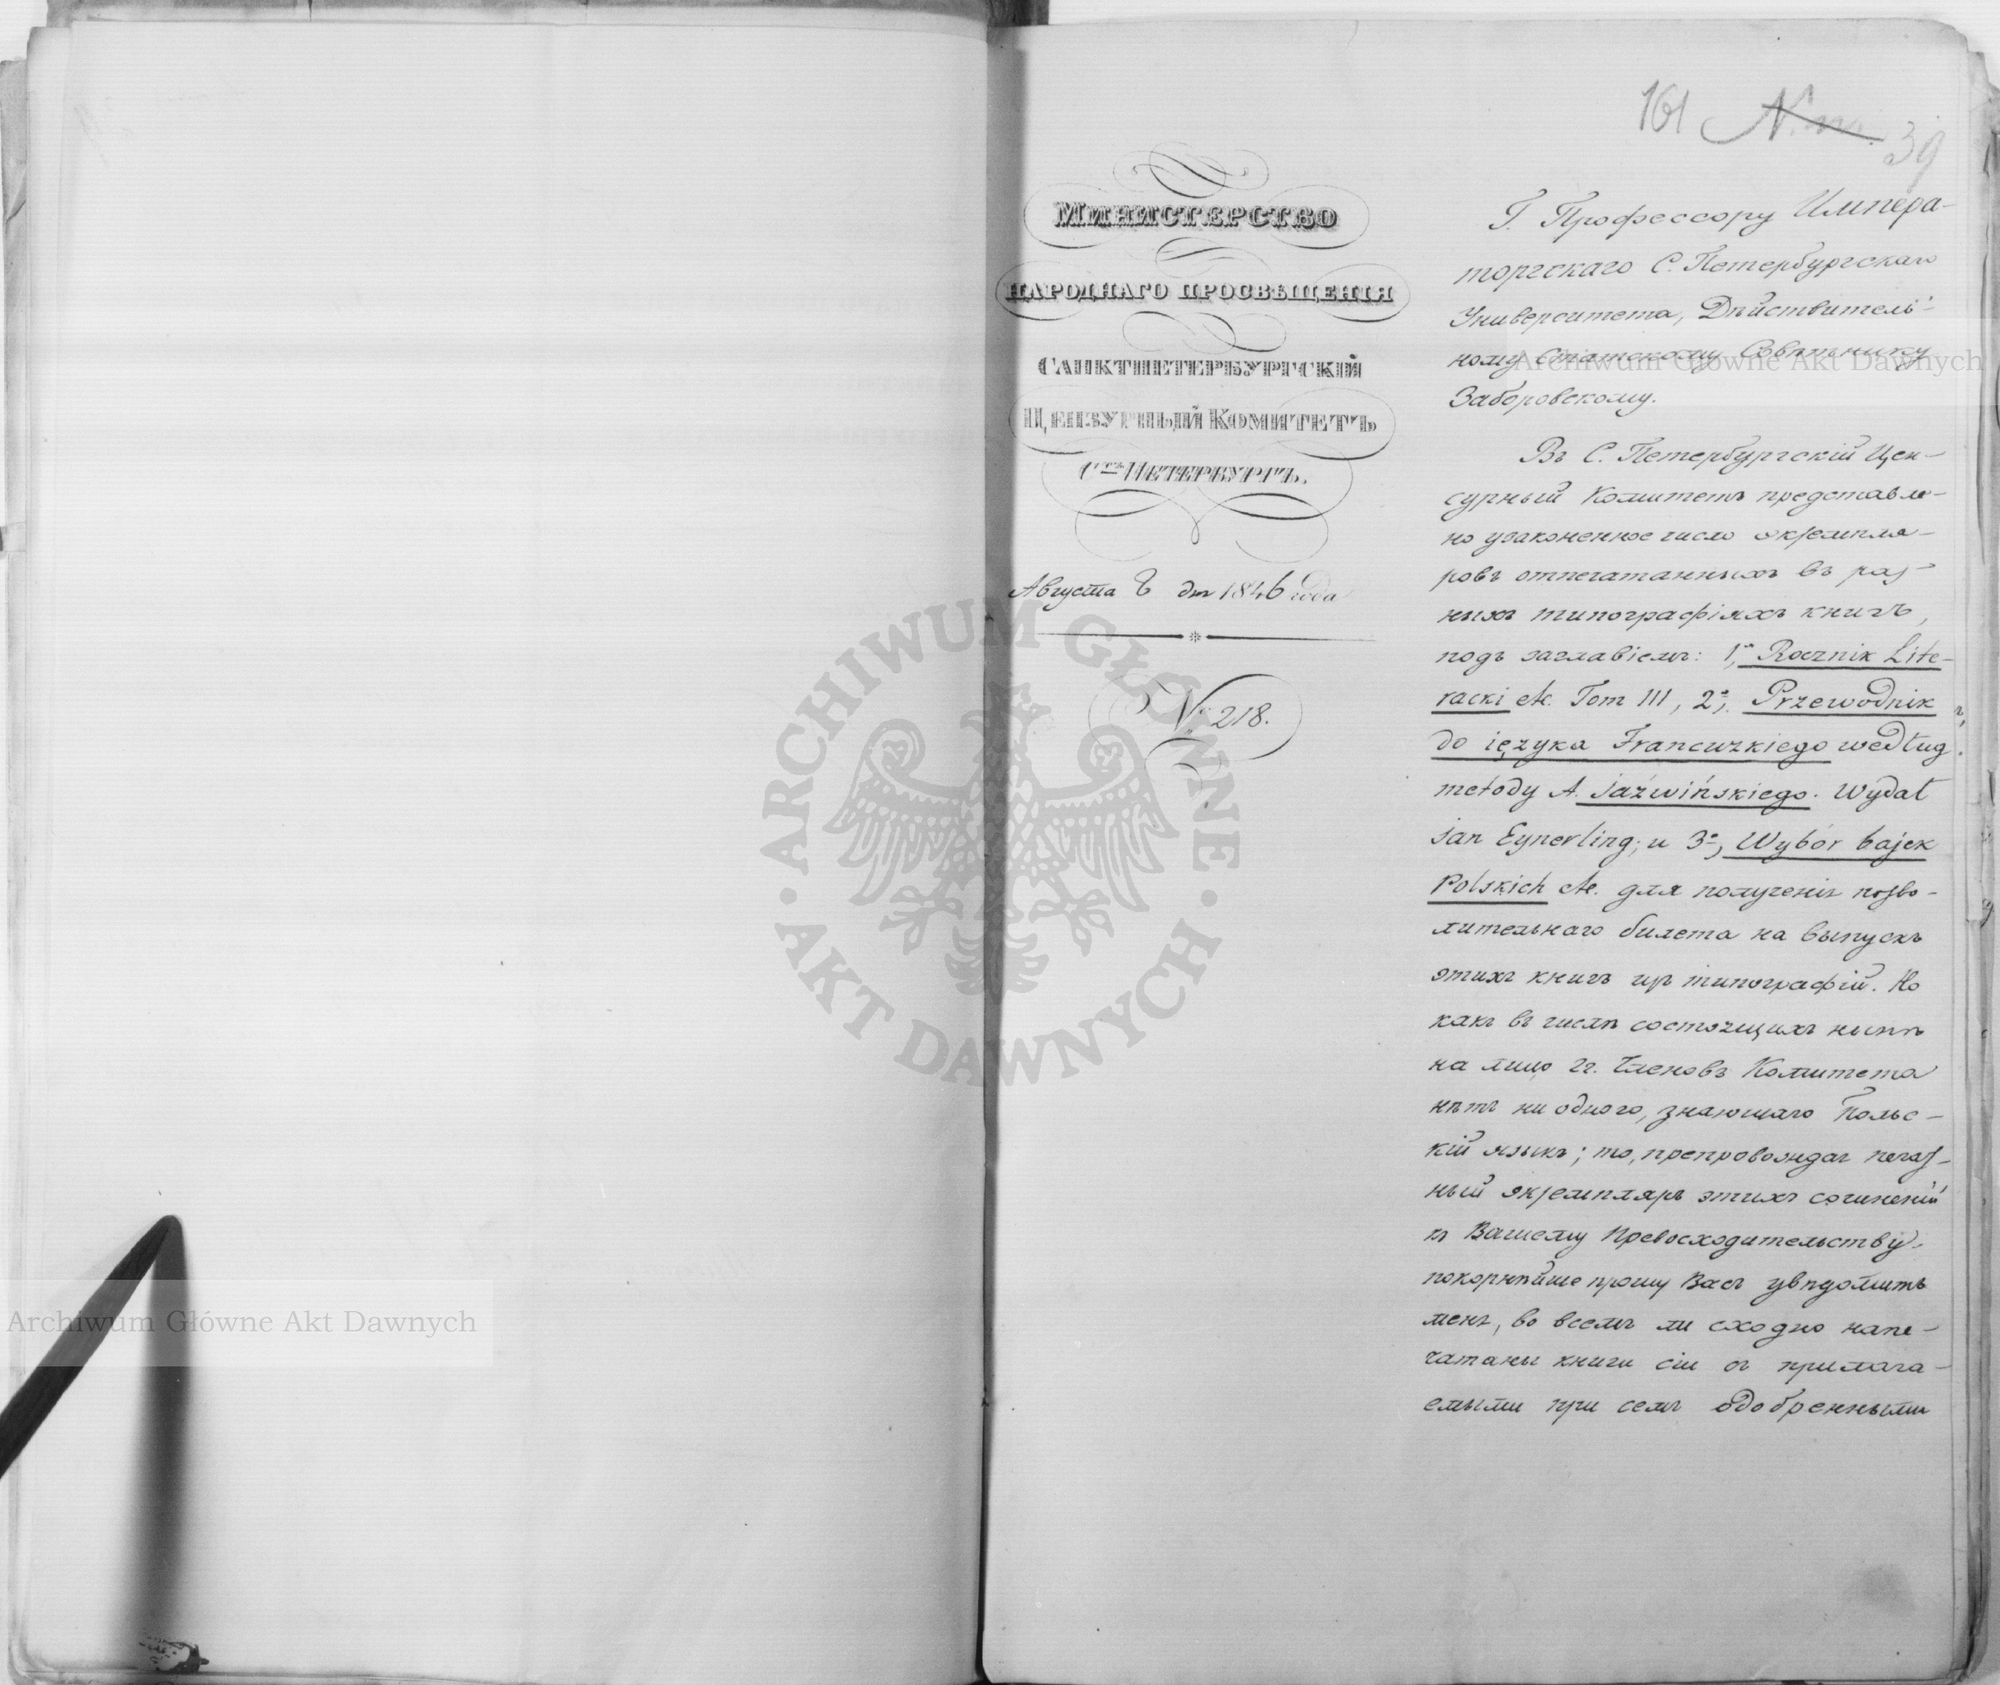 161
39
Министерство
народнаго просвѣщенія
Санктпетербургскій
Цензурный Комитетъ
С.тъ Петербургъ.
Августа 8 дня 1846 года
№ 218.
Г. Профессору Импера-
торскаго С. Петербургскаго
Университета, Дѣйствитель-
ному Статскому Совѣтнику
Заборовскому.
Въ С. Петербургскій Цен-
сурный Комитетъ представле-
но узаконенное число экземпля-
ровъ отпечатанныхъ въ раз-
ныхъ типографіяхъ книгъ,
подъ заглавіемъ: 1, Rocznik Lite-
racki etc. Tom III, 2, Przewodnik
do ięzyka Francuzkiego według
metody A. Jaźwińskiego. Wydał
jan Eynerling; и 3, Wybór bajek
Polskich etc. для полученія позво-
лительнаго билета на выпускъ
этихъ книгъ изъ типографій. Но
какъ въ числѣ состоящихъ нынѣ
на лицо гг. Членовъ Комитета
нѣтъ ни одного, знающаго Поль-
скій языкъ; то, препровождая печат-
ный экземпляръ этихъ сочиненій
къ Вашему Превосходительству,
покорнѣйше прошу Васъ увѣдомить
меня, во всемъ ли сходно напе-
чатаны книги сіи съ прилага-
емыми при семъ одобренными
Archiwum Główne Akt Dawnych
Archiwum Główne Akt Dawnych
ARCHIWUM GŁÓWNE · AKT DAWNYCH ·